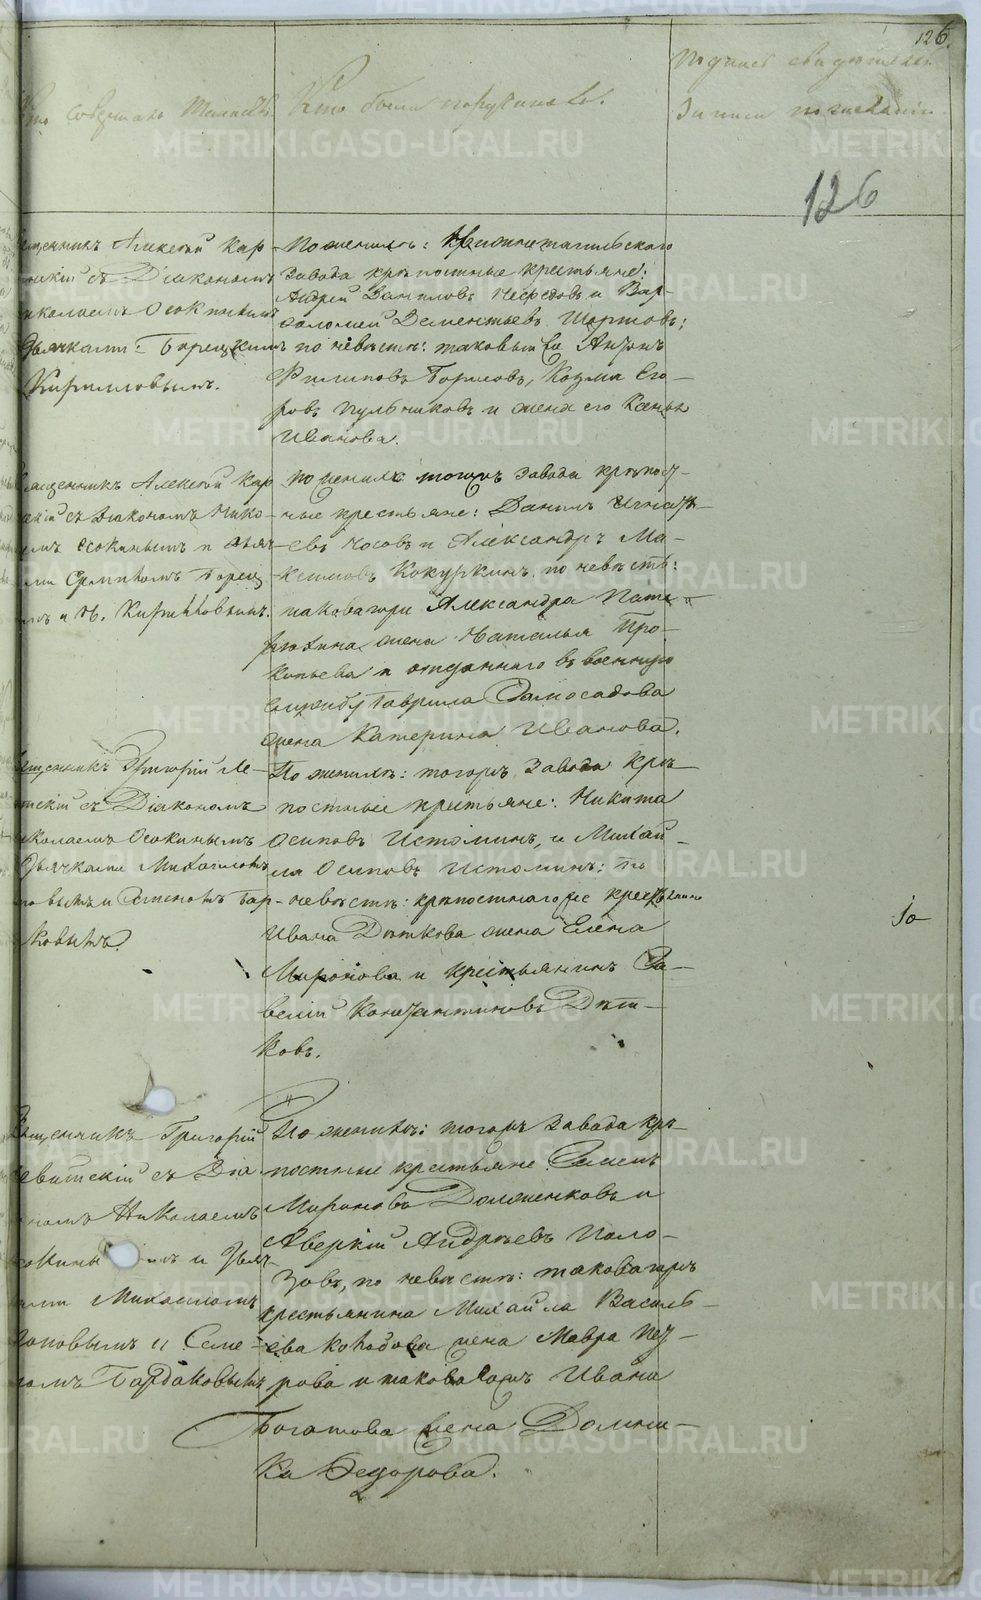 126.
Кто совершалъ Таинство
Кто были поручители.
Подпись свидетелей
записи по желанію
126
щенникъ Алексѣй Кар-
скій съ Діакономъ
иколаемъ Осокинымъ
Дьячками: Борецкимъ
Кириловымъ.
По женихѣ: Нижнетагильскаго
завода крѣпостные крестьяне:
Андрей Даниловъ и Вар-
фоломей Дементьевъ Шортовъ;
по невѣстѣ: таковые же Антонъ
Филиповъ Борисовъ, Козма Его-
ровъ Пульниковъ и жена его
Иванова.
священникъ Алексѣй Кар
скій съ Діакономъ Нико-
емъ Осокинымъ и дьяч-
ами Борец
и Кириловымъ.
по женихѣ тогожъ завода крѣпост-
ные крестьяне: Данилъ Игнать-
евъ Носовъ и Александръ Ма-
ксимовъ Кокушкинъ, по невѣстѣ:
таковагоже Александра
жена Наталья Про-
копьева и отданнаго въ военную
службу Гаврила Самосадова
жена Катерина Иванова.
щенникъ Григорій Ле-
итскій съ Діакономъ
иколаемъ Осокинымъ
Дьячками Михаиломъ
повымъ и Семеномъ Бар-
ковымъ.
По женихѣ: тогожъ завода крѣ-
постные крестьяне: Никита
Осиповъ Истоминъ, и Михай-
ла Осиповъ Истоминъ; по
невѣстѣ: крѣпостнаго же крестьянина
Ивана Дѣткова жена Елена
Миронова и крестьянинъ Са-
велій Константиновъ Дѣт-
ковъ.
щенникъ Григорій
евитскій съ Діа
ономъ Николаемъ
окинымъ и Дьяч-
ами Михаиломъ
оповымъ и Семе-
номъ Бардаковымъ
По женихѣ: тогожъ завода крѣ-
постные крестьяне Семенъ
Мироновъ Долженковъ и
Аверкій Андреевъ Поло-
зовъ, по невѣстѣ: таковагожъ
крестьянина Михайла Василь-
ева жена Мавра Пет-
рова и таковагожъ Ивана
Богатова жена Домни-
ка Федорова.
METRIKI.GASO-URAL.RU